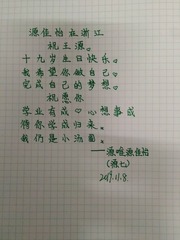 源佳怡在浙江
祝王源。
十九岁生日快乐。
我希望你做自己。
完成自己的梦想。
祝愿你
学业有成♡心想事成
待你学成归来。
我们是小汤圆。
——源唯源佳怡
(源七)
2019.11.8